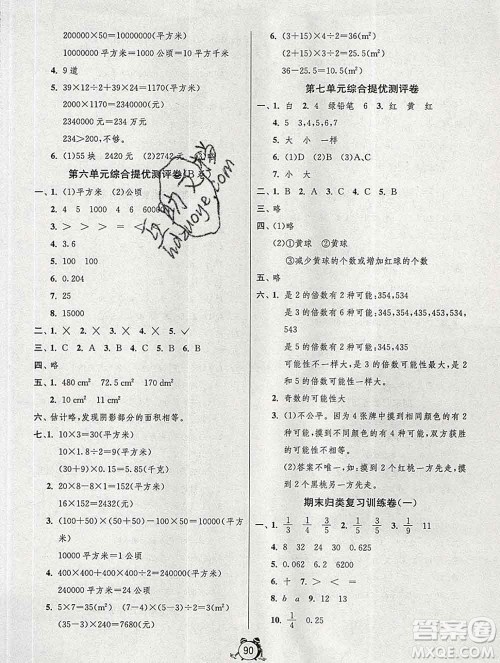 200000×50=10000000(平方米)
10000000平方米=1000公顷=10平方千米
4. 9道
5. 39×12÷2×10=2340(平方米)
2340×1000=2340000(元)
2340000元=234万元
234＞200,不够。
6. (1)55块 2420元 (2)2742元
第六单元综合提优测评卷(B卷)
一、1. (1)平方米 (2)公顷
2. 4 5 1000 1000000
3. ＞ ＞ ＝ ＜
4. 3.6
5. 100 100
6. 0.204
7. 25
8. 15000
二、1. × 2. × 3. × 4. × 5. ✓
三、1. B 2. C 3. A 4. B 5. B
四、略
五、1. 480 cm² 72.5 cm² 170 cm²
2. 10 cm² 11 cm²
六、估计略,发现阴影部分的面积相等。
七、1. 10×3=30(平方米)
10×1.8÷2=9(平方米)
(30+9)×0.15=5.85(千克)
2. 16×10=160(平方米)
160×152=24320(元)
3. (100+50)×(100+50)-100×100-50×50=10000(平方米)
10000平方米=1公顷
4. 400×400+240×400÷2=208000(平方米)
5. 5×7=35(分米) 6×4=24(分米)
(35-24)×240=7680(平方米)
6. (3+15)×4÷2=36(m²)
(2+15)×3÷2=25.5(m²)
36-25.5=10.5(m²)
第七单元综合提优测评卷
一、1. 白 2. 4 绿铅笔 6 3. 红 黄 红
4. 5 3 5. 3,4,5,6,7
6. 大 小
7. 大 小
二、1. C 2. B 3. C 4. A 5. B
6. (1)C (2)B (3)A (4)D
三、略
四、(1)略
(2)①黄球 ②黄球
③减少黄球的个数或增加红球的个数
五、略
六、1. 是2的倍数有2种可能:354,534
是3的倍数有6种可能:
345,354,435,453,534,543
是5的倍数有2种可能:345,435
是3的倍数可能性最大,是2和5的倍数的可能性最小
2. 奇数的可能性大
3. (1)不公平。因为4张牌中摸到相同颜色的有2种可能,摸到不同颜色的有4种可能,双方获胜的可能性不同。
(2)答案不唯一,如:摸到2个红桃方一先走,摸到2个黑桃另一方先走。
期末归类复习训练卷(一)
4. 8 24 32 0.625
5. 0.36 0.12
6. ÷ + 7. ＜ ＞ ＜ ＝
8. b a 9. 13
10. 1/4 0.25
90
答案圈
MXQE.COM
互助文档
hdzuoye.com